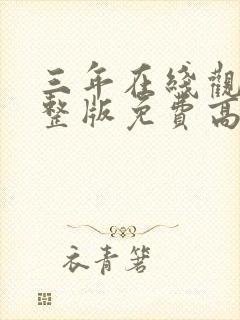 三年在线觀
整版免費高
衣青箬